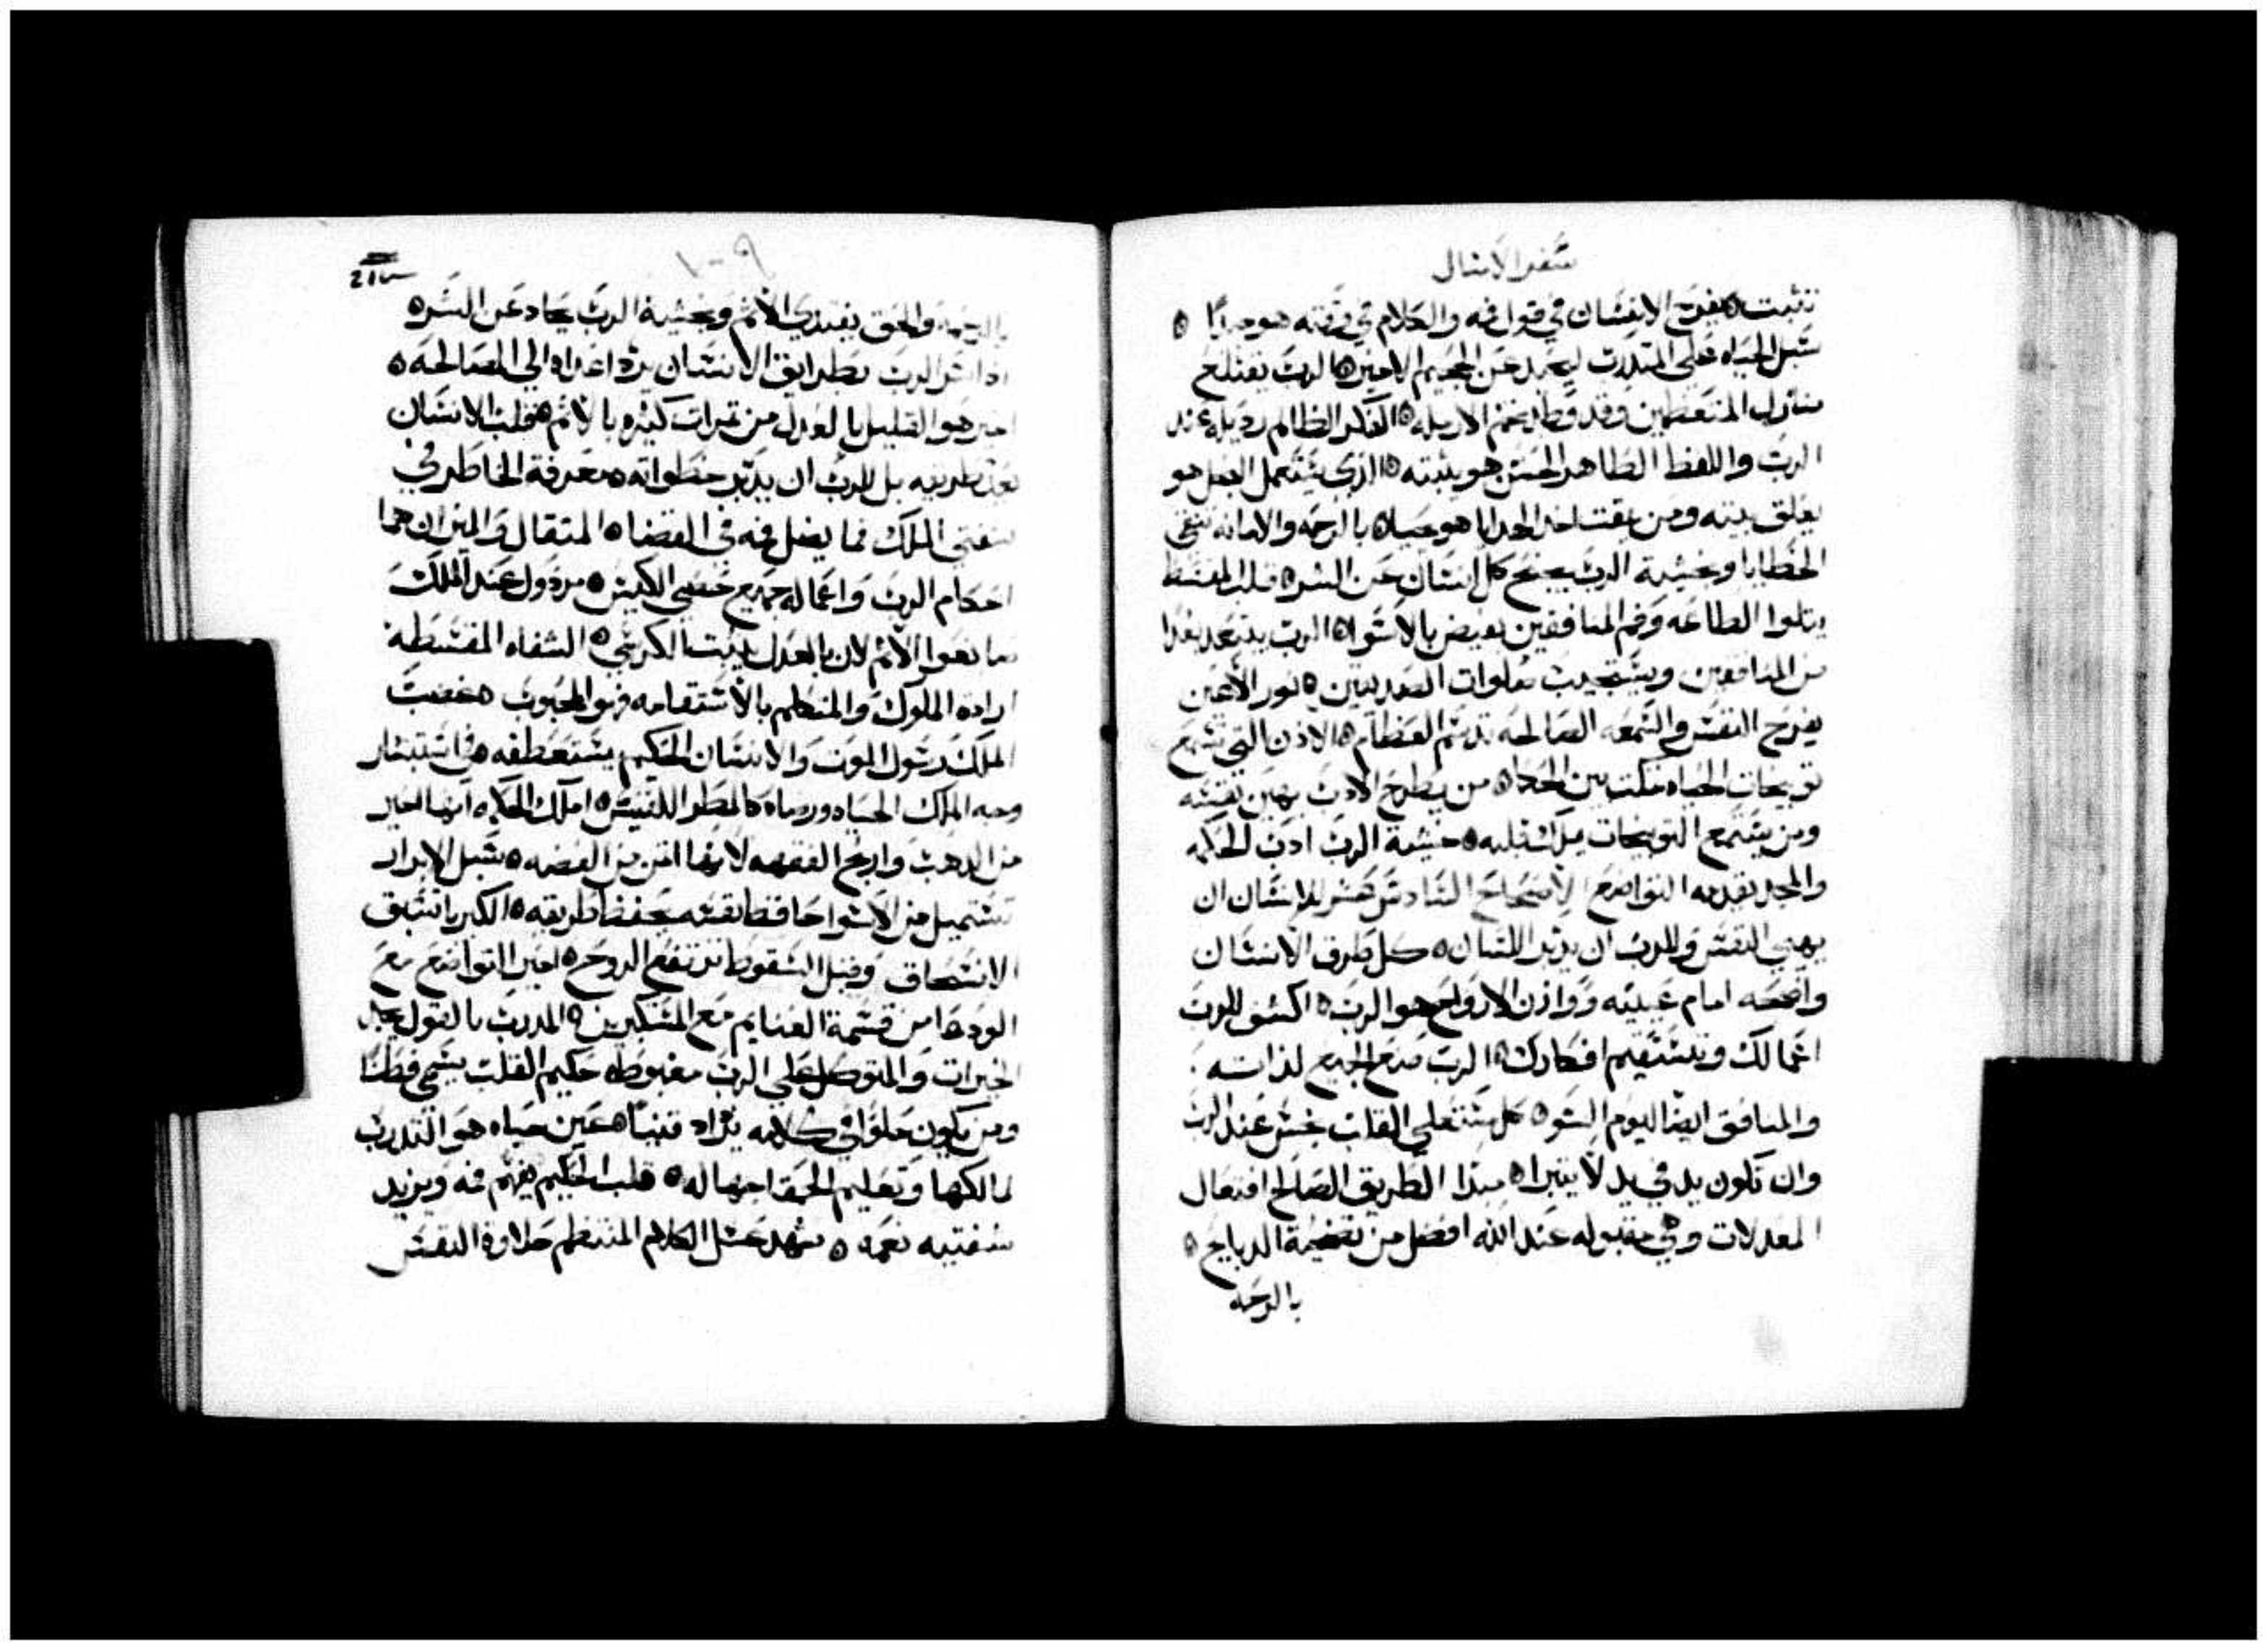 سفر الامثال
تثبت ه يفرح الانسان في قول فه والكلام في وقته هو جدًا ه
سبل الحياه على المتدرب ليحيد عن الجحيم الاخير ه الرب يقتلع
منازل المتعظمين وقد وطد تخم الارمله ه الفكر الظالم رديله عند
الرب واللفظ الطاهر الحسن هو يثبته ه الذي يستعمل البخل هو
يقلق بيته ومن يمقت اخذ الهدايا هو يحيا ه بالرحمه والامانه تنقي
الخطايا وبخشية الرب يجنح كل انسان عن الشر ه قلب المقسط
يتلوا الطاعه وفم المنافقين يفيض بالاسوا ه الرب يبتعد بعدا
من المنافقين ويستجيب صلوات الصديقين ه نور الاعين
يفرح النفس والسمعه الصالحه تدسم العظام ه الاذن التي تسمع
توبيخات الحياه تمكث بين الحكما ه من يطرح الادب يهين نفسه
ومن يستمع التوبيخات يملك قلبه ه خشية الرب ادب الحكمه
والمجد يقدمه التواضع الاصحاح السادس عشر للانسان ان
يهيي النفس وللرب ان يدبر اللسان ه كل طرق الانسان
واضحه امام عينيه ووازن الارواح هو الرب ه اكشف للرب
اعمالك وتستقيم افكارك ه الرب صنع الجميع لذاته
والمنافق ايضا اليوم السو ه كل مستعلي القلب نجس عند الرب
وان تكون يد في يد لا يتبرا ه مبدا الطريق الصالح افتعال
المعدلات وهي مقبوله عند الله افضل من تضحية الدبايح ه
بالرحمه
١٠٩
بالرحمه والحق يفتدي الاثم وبخشية الرب يحاد عن الشر ه
اذا سر الرب بطرايق الانسان يرد اعداه الي المصالحه ه
اخير هو القليل بالعدل من ثمرات كثيره بالاثم ه قلب الانسان
يعد طريقه بل للرب ان يدبر خطواته ه معرفة الخاطر في
شفتي الملك فما يضل فه في القضا ه المثقال والميزان هما
احكام الرب واعماله جميع حصي الكيس ه مردول عند الملك
صانعوا الاثم لان بالعدل يثبت الكرسي ه الشفاه المقسطه
ارادة الملوك والمتكلم بالاستقامه هو المحبوب ه غضب
الملك رسول الموت والانسان الحكيم يستعطفه ه في استبشار
وجه الملك الحياه ورضاه كالمطر اللقيس ه املك الحكمه انها اخير
من الدهب واربح الفقهه لانها اثمن من الفضه ه سبل الابرار
تستميل من الاسوا حافظ نفسه يحفظ طريقه ه الكبريا تسبق
الانسحاق وقبل السقوط ترتفع الروح ه اخير التواضع مع
الودعا من قسمة الغنايم مع المتكبرين ه المدرب بالقول يجد
الخيرات والمتوكل علي الرب مغبوط ه حكيم القلب يسمي فطنًا
ومن يكون حلوًا في كلامه يزاد قنيًا ه عين حياه هو التدرب
لمالكها وتعليم الحمقا جهاله ه قلب الحكيم يفهم فه ويزيد
شفتيه نعمه ه شهد عسل الكلام المنتظم حلاوة النفس